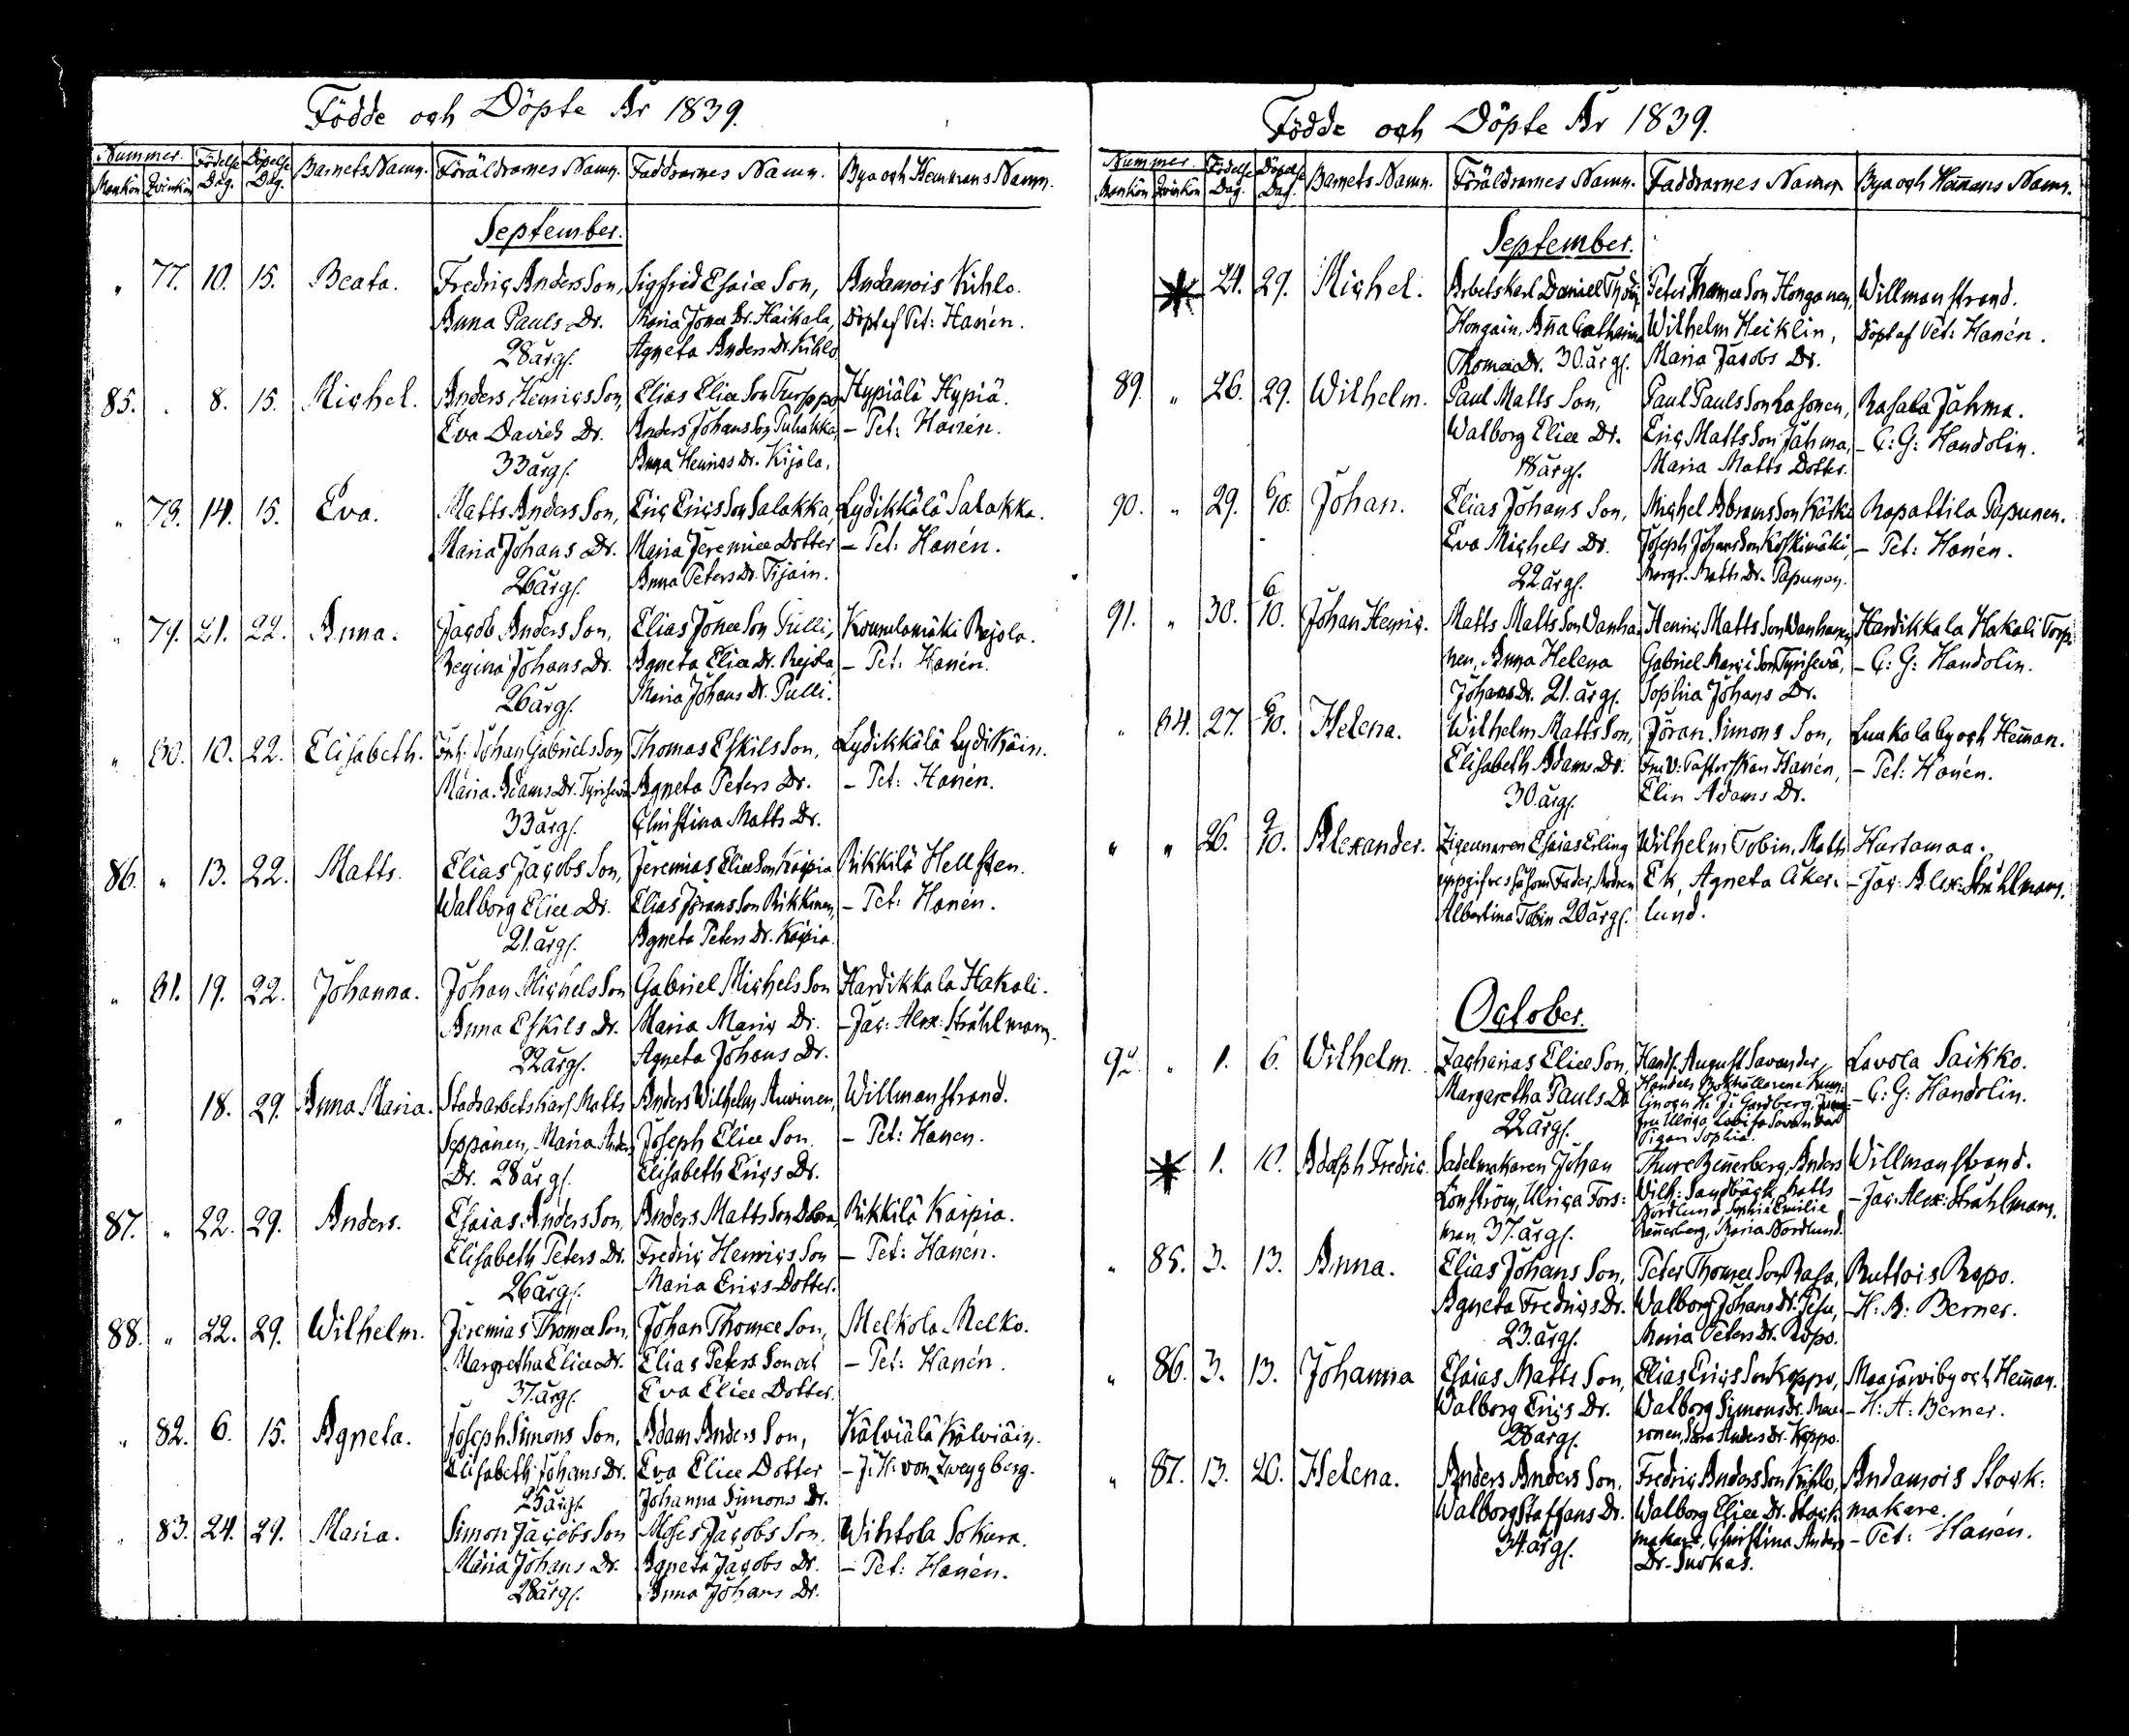 Födde och Döpte År 1839.
Nummer. Födelse Dag. Döpelse Dag. Barnets Namn. Föräldrarnes Namn. Faddrarnes Namn. Bya och Hemmans Namn.
Mankön Qvinkön
September.
" 77. 10. 15. Beata. Fredric Anders Son, Sigfrid Esaiæ Son, Andamois Kihlo.
Anna Pauls Dr. Maria Jonæ Dr. Haikala, Döpt af Pet: Hanén.
28 årg. Agneta Anders Dr. Kihlo
85. " 8. 15. Michel. Anders Henrics Son, Elias Eliæ Son Turppo, Hypiälä Hypiä.
Eva Davids Dr. Anders Johans Son Puhakka, – Pet: Hanén.
33 årg. Anna Henrics Dr. Kijala.
" 78. 14. 15. Eva. Matts Anders Son, Eric Erics Son Salakka, Lydikkälä Salakka.
Maria Johans Dr. Maria Jeremiæ Dotter – Pet: Hanén.
26 årg. Anna Peters Dr. Tijain.
" 79. 21. 22. Anna. Jacob Anders Son, Elias Jonæ Son Pulli, Kounelamäki Rejola.
Regina Johans Dr. Agneta Eliæ Dr. Rejola, – Pet: Hanén.
26 årg. Maria Johans Dr. Pulli.
" 80. 10. 22. Elisabeth. Inh. Johan Gabriels Son Thomas Eskils Son, Lydikkälä Lydikäin.
Maria Adams Dr. Tyrisevä Agneta Peters Dr. – Pet: Hanén.
33 årg. Christina Matts Dr.
86. " 13. 22. Matts. Elias Jacobs Son, Jeremias Eliæ Son Kaipia Rikkilä Hellsten.
Walborg Eliæ Dr. Elias Jörans Son Rikkinen, – Pet: Hanén.
21. årg. Agneta Peters Dr. Kaipia.
" 81. 19. 22. Johanna. Johan Michels Son Gabriel Michels Son Hardikkala Hakali.
Anna Eskils Dr. Maria Maric Dr. – Jac: Alex: Stråhlmann.
22 årg. Agneta Johans Dr.
" 18. 29. Anna Maria. Stadsarbetskarl Matts Anders Wilhelm Auvinen, Willmanstrand.
Seppänen, Maria Anders Joseph Eliæ Son. – Pet: Hanén.
Dr. 28 årg. Elisabeth Erics Dr.
87. " 22. 29. Anders. Esaias Anders Son, Anders Matts Son Rikkilä Kaipia.
Elisabeth Peters Dr. Fredric Henrics Son – Pet: Hanén.
26 årg. Maria Erics Dotter.
88. " 22. 29. Wilhelm. Jeremias Thomæ Son, Johan Thomæ Son, Melkola Melko.
Margretha Eliæ Dr. Elias Peters Son och – Pet: Hanén.
37. årg. Eva Eliæ Dotter.
" 82. 6. 15. Agneta. Joseph Simons Son, Adam Anders Son, Kälviälä Kälviäin.
Elisabeth Johans Dr. Eva Eliæ Dotter – J: H: von Zweygberg.
25 årg. Johanna Simons Dr.
" 83. 24. 29. Maria. Simon Jacobs Son Moses Jacobs Son. Wihtola Sokura.
Maria Johans Dr. Agneta Jacobs Dr. – Pet: Hanén.
28 årg. Anna Johans Dr.
Födde och Döpte År 1839.
Nummer. Födelse Dag. Döpelse Dag. Barnets Namn. Föräldrarnes Namn. Faddrarnes Namn. Bya och Hem̄ans Namn.
Mankön Qvinkön
September.
24. 29. Michel. Arbetskarl Daniel Thom: Peter Thomæ Son Honganen, Willmanstrand.
Hongain, Ana Catharina Wilhelm Heiklin, Döpt af Pet: Hanén.
Thomæ Dr. 30. årg. Maria Jacobs Dr.
89. " 26. 29. Wilhelm. Paul Matts Son, Paul Pauls Son Lasonen, Rasala Jahma.
Walborg Eliæ Dr. Eric Matts Son Jahma, – C: G: Handolin.
18 årg. Maria Matts Dotter.
90. " 29. 6/10. Johan. Elias Johans Son, Michel Abrams Son Käski Rapattila Papunen.
Eva Michels Dr. Joseph Johans Son Koskimäki, – Pet: Hanén.
22 årg. Margr. Matts Dr. Papunen.
91. " 30. 6/10. Johan Henric. Matts Matts Son Vanha- Henric Matts Son Vanhanen, Hardikkala Hakali Torp.
nen, Anna Helena Gabriel Marci Son Tyrisevä, – C: G: Handolin.
Johans Dr. 21. årg. Sophia Johans Dr.
" 84. 27. 6/10. Helena. Wilhelm Matts Son, Jöran Simons Son, Luukala by och Hem̄an.
Elisabeth Adams Dr. Fru V: Pastorskan Hanén, – Pet: Hanén.
30. årg. Elin Adams Dr.
" " 26. 9/10. Alexander. Zigeunaren Esaias Erling Wilhelm Tobin, Matts Hurtamaa.
uppgifves såsom Fader, Modren Ek, Agneta Åker- – Jac: Alex: Stråhlmann.
Albertina Tobin 20 årg. lund.
October.
92. " 1. 6. Wilhelm. Zacharias Eliæ Son, Handl. August Savander, Lavola Saikko.
Margaretha Pauls Dr. Handels Bokhållarene – C: G: Handolin.
22 årg. H. J: Gardberg,
fru Ulrica Lovisa Savander
Pigan Sophia.
1. 10. Adolph Fredric. Sadelmakaren Johan Thure Ben̄erberg, Anders Willmanstrand.
Lönström, Ulrica Fors: Wilh: Sandbäck, Matts – Jac: Alex: Stråhlmann.
man, 37. årg. Nordlund, Sophia Emilie
Ren̄erberg, Maria Nordlund.
" 85. 3. 13. Anna. Elias Johans Son, Peter Thomæ Son Rasa, Ruttois Ropo.
Agneta Fredrics Dr. Walborg Johans Dr. Pesu, – H: A: Berner.
23. årg. Maria Peters Dr. Ropo.
" 86. 3. 13. Johanna Esaias Matts Son, Elias Erics Son Koppo, Maajärvi by och Hem̄an.
Walborg Erics Dr. Walborg Simons Dr. Mau- – H: A: Berner.
28 årg. ronen, Sara Anders Dr. Koppo.
" 87. 13. 20. Helena. Anders Anders Son, Fredric Anders Son Kihlo, Andamois Stock:
Walborg Staffans Dr. Walborg Eliæ Dr. Stock- makare.
34. årg. makare, Christina Anders – Pet: Hanén.
Dr. Surkas.